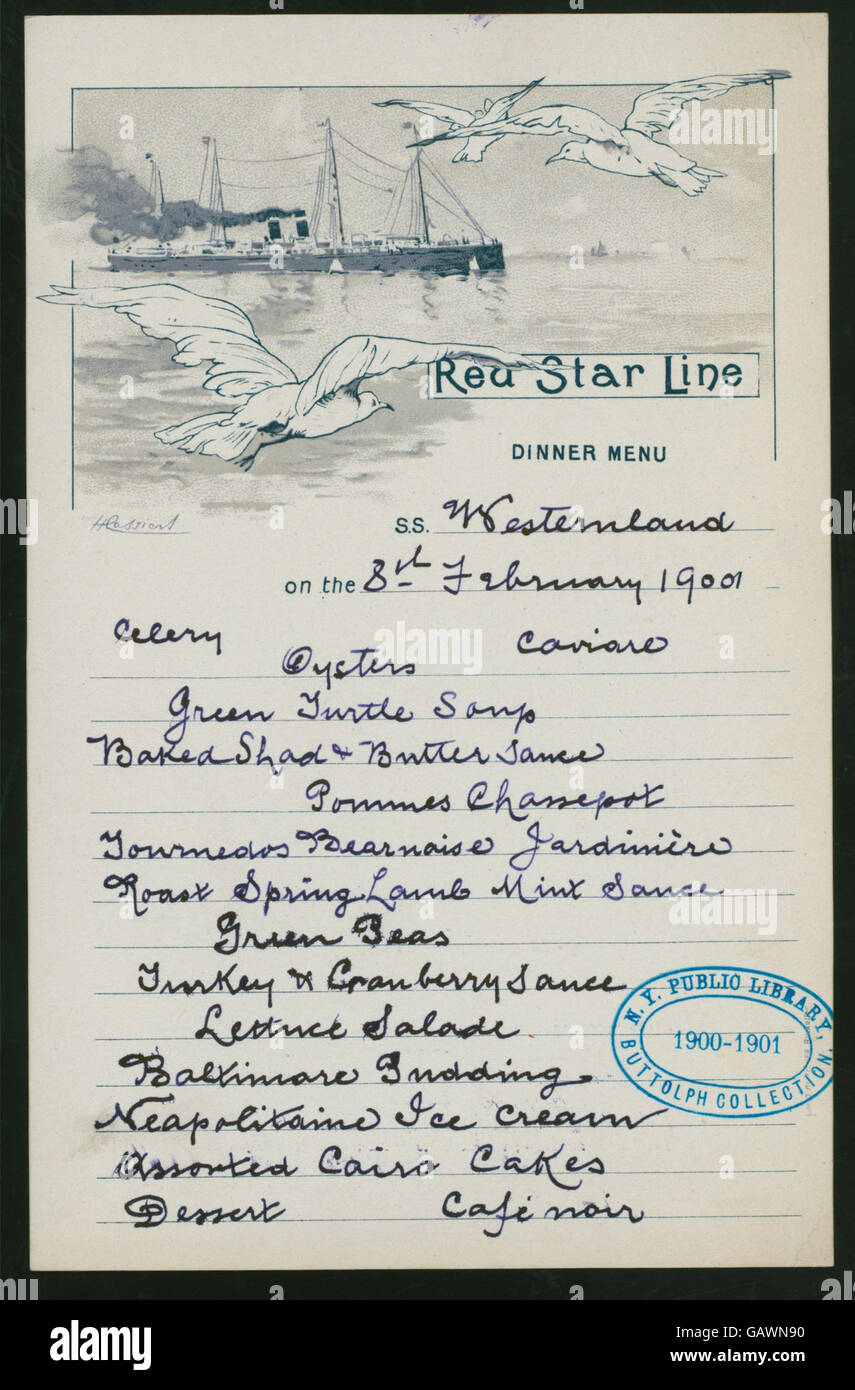 Red Star Line
DINNER MENU
HCassiers
S.S. Westernland
on the 8st February 1901
Celery Caviare
Oysters
Green Turtle Soup
Baked Shad & Butter Sauce
Pommes Chassepot
Tournedos Bearnaise Jardinière
Roast Spring Lamb Mint Sauce
Green Peas
Turkey & Cranberry Sauce
Lettuce Salade
Baltimore Pudding
Neapolitaine Ice Cream
Assorted Cairo Cakes
Dessert Café noir
N.Y. PUBLIC LIBRARY,
1900-1901
BUTTOLPH COLLECTION.
alamy
alamy
Image ID: GAWN90
www.alamy.com